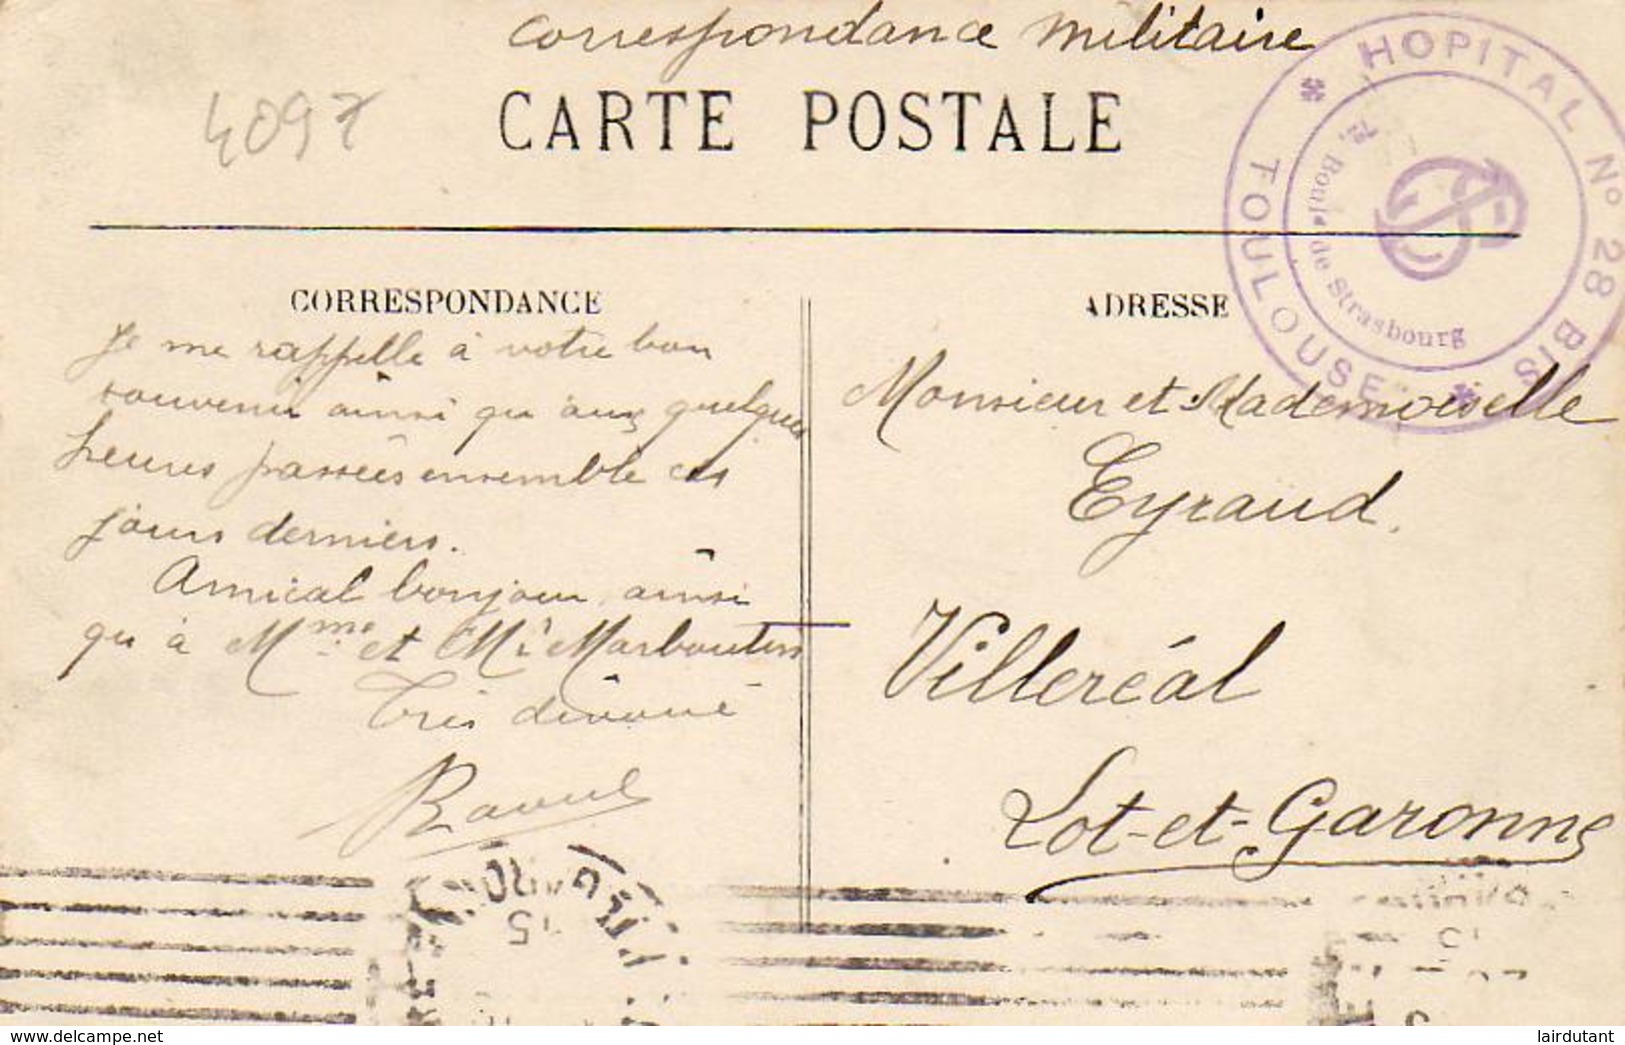 Correspondance Militaire
CARTE POSTALE
4097
HOPITAL N° 28 BIS
TOULOUSE
Boulᵈ de Strasbourg
CORRESPONDANCE
Je me rappelle à votre bon
souvenir ainsi qu'aux quelques
heures passées ensemble ces
jours derniers.
Amical bonjour ainsi
qu'à Mme et Mr Marboutin
Très dévoué
Raoul
ADRESSE
Monsieur et Mademoiselle
Eyraud.
Villeréal
Lot-et-Garonne
delcampe.net
lairdutant